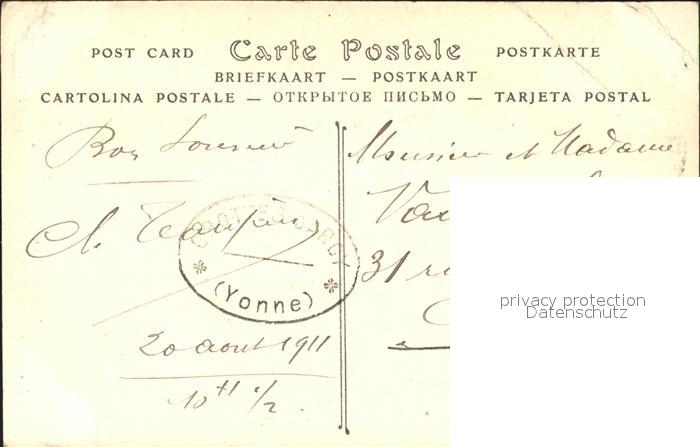 POST CARD Carte Postale POSTKARTE
BRIEFKAART — POSTKAART
CARTOLINA POSTALE — ОТКРЫТОЕ ПИСЬМО — TARJETA POSTAL
Bon Souvenir
(Yonne)
20 aout 1911
10 H ½
Monsieur et Madame
31
privacy protection
Datenschutz